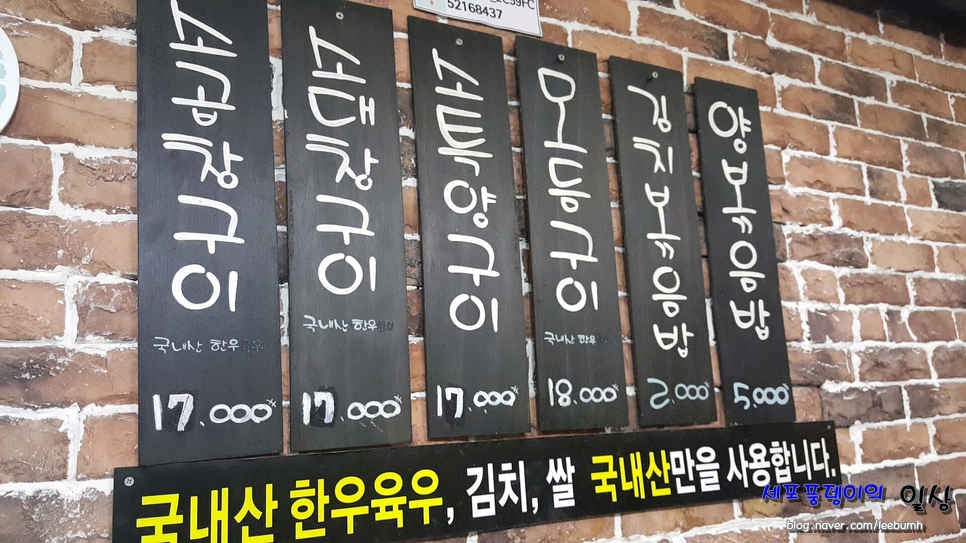 2C59FC
52168437
소막창구이
국내산 한우
17.000
소대창구이
국내산 한우
17.000
소특양구이
17.000
모듬구이
국내산 한우
18.000
김치볶음밥
2.000
양볶음밥
5.000
국내산 한우육우, 김치, 쌀 국내산만을 사용합니다.
세포풍뎅이의 일상
blog.naver.com/leebumh